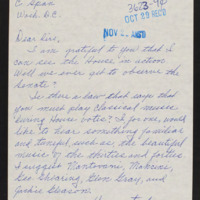 C Span
Wash. D.C
3623-90
OCT 29 REC'D
NOV 2 REC'D
Dear Sir,
I am grateful to you that I
can see the House in action
Will we ever get to observe the
Senate?
Is there a law that says that
you must play classical music
during House votes? I for one, would
like to hear something familiar
and tonight, such as the beautiful
music of the thirties and forties
I suggest Mantovani, Mancini,
Geo Shearing, Glen Gray, and
Jackie Gleason.